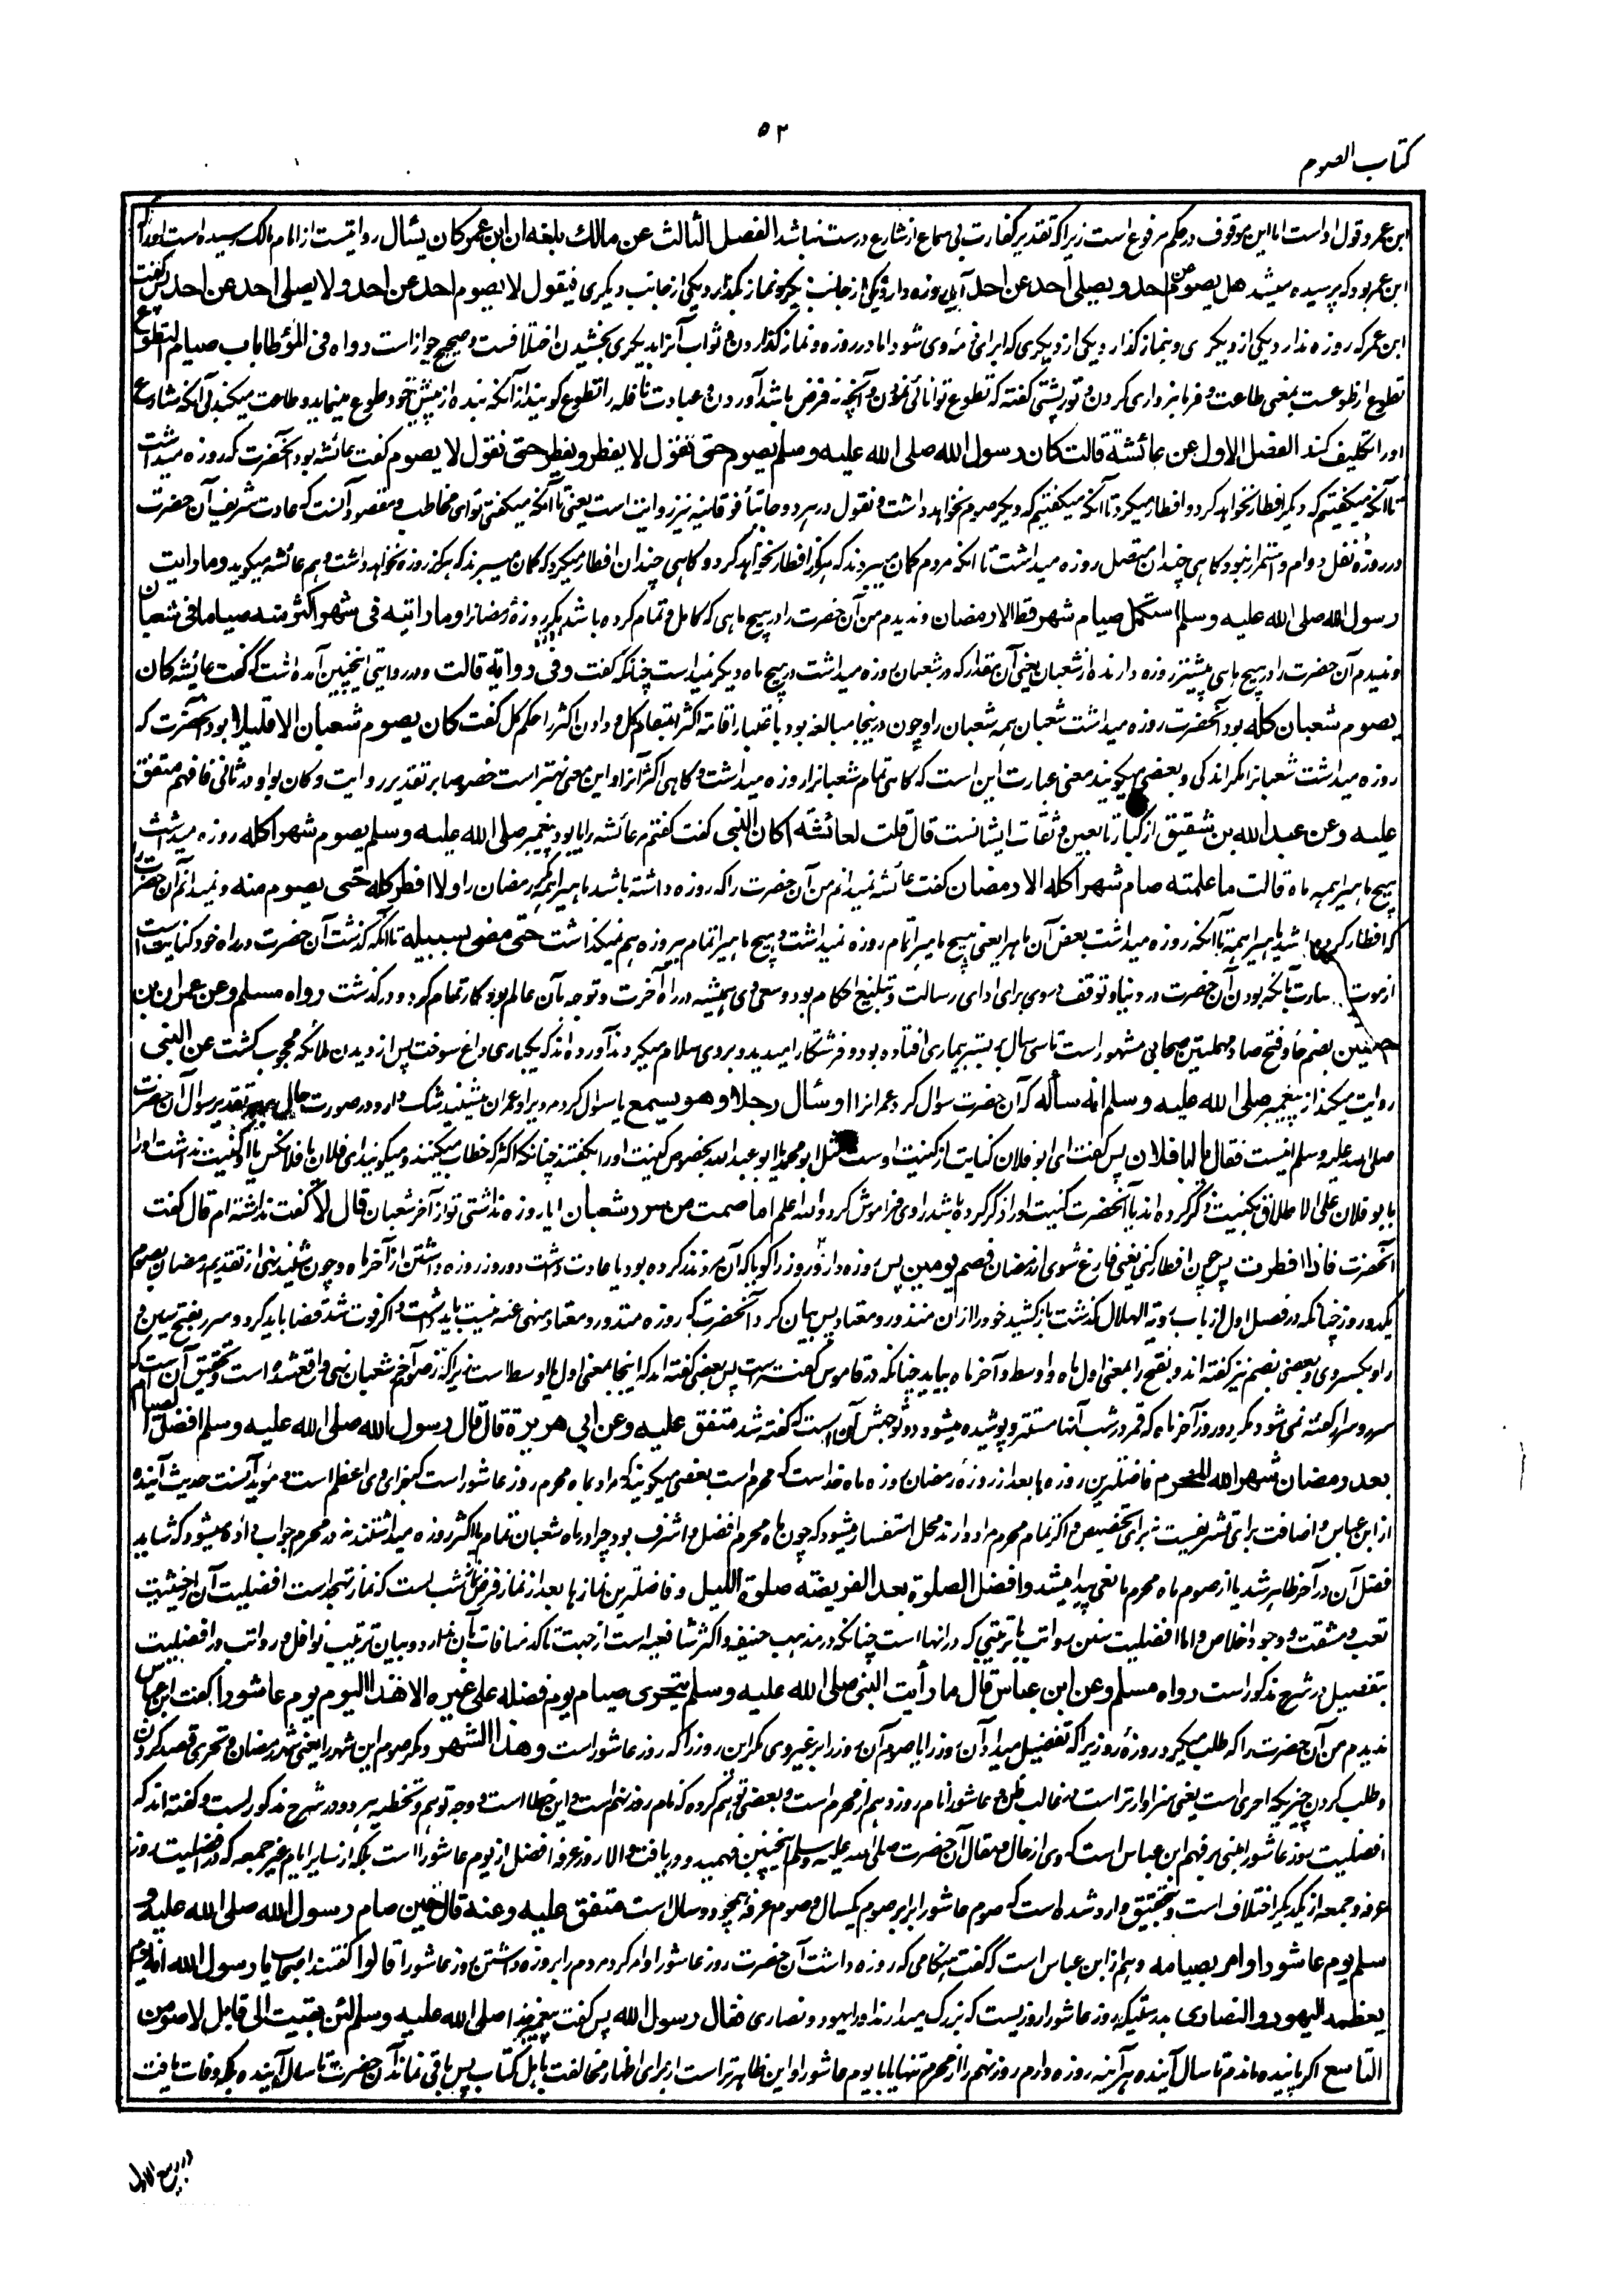 ۵۲
کتاب الصوم
ابن عمر و قول اوست اما این موقوف در حکم مرفوع است زیرا که تقدیر کفارت بی سماع از شارع درست نباشد الفصل الثالث عن مالك بلغه ان ابن عمر كان يسأل روایتست از امام مالک رسیده است او را که
ابن عمر بود که پرسیده میشد هل يصوم احد عن احد و يصلی احد عن احد آیا روزه دارد یکی از جانب دیگری و نماز گذارد یکی از جانب دیگری فيقول لا يصوم احد عن احد ولا يصلی احد عن احد پس گفت
ابن عمر که روزه ندارد یکی از دیگری و نماز نگذارد یکی از دیگری که ابرای ذمهٔ وی شود اما در روزه و نماز گذاردن و ثواب آنرا بدیگری بخشیدن اختلافست و صحیح جواز است رواه فی المؤطا باب صيام التطوع
تطوع از طوعست بمعنی طاعت و فرمانبرداری کردن و تورپشتی گفته که تطوع توانائی نمودن و آنچه نه فرض باشد آوردن و عبادت نافله را تطوع گویند از آنکه بنده از پیش خود طوع مینماید و طاعت میکند بی آنکه شارع
او را تکلیف کند الفصل الاول عن عائشة قالت كان رسول الله صلى الله عليه وسلم يصوم حتى نقول لا يفطر ويفطر حتى نقول لا يصوم گفت عائشه بود آنحضرت که روزه میداشت
تا آنکه میگفتیم که دیگر افطار نخواهد کرد و افطار میکرد تا آنکه میگفتیم که دیگر صوم نخواهد داشت و نقول در هر دو جا بتاء فوقانیه نیز روایت است یعنی تا آنکه میگفتی تو ای مخاطب و مقصود آنست که عادت شریف آن حضرت
در روزهٔ نفل دوام و استمرار نبود گاهی چندان متصل روزه میداشت تا آنکه مردم گمان میبردند که هرگز افطار نخواهد کرد و گاهی چندان افطار میکرد که گمان میبردند که هرگز روزه نخواهد داشت و هم عائشه میگوید وما رأيت
رسول الله صلى الله عليه وسلم استكمل صيام شهر قط الا رمضان و ندیدم من آن حضرت را در هیچ ماهی که کامل و تمام کرده باشد مگر روزهٔ رمضانرا وما رأيته فی شهر اكثر منه صياما فی شعبان
و ندیدم آن حضرت را در هیچ ماهی بیشتر روزه دارنده از شعبان یعنی آن مقدار که در شعبان روزه میداشت در هیچ ماه دیگر نمیداشت چنانکه گفت وفی رواية قالت و در روایتی اینچنین آمده است که گفت عایشه كان
يصوم شعبان كله بود آنحضرت روزه میداشت شعبان همه شعبان را و چون درینجا مبالغه بود باعتبار اقامة اکثر بمقام کل و دادن اکثر را حکم کل گفت كان يصوم شعبان الا قليلا بود آنحضرت که
روزه میداشت شعبانرا مگر اندکی و بعضی میگویند معنی عبارت این است که گاهی تمام شعبانرا روزه میداشت و گاهی اکثر آنرا و این معنی بهتر است خصوصا بر تقدیر روایت و کان بواو در ثانی فافهم متفق
عليه وعن عبد الله بن شقيق از کبار تابعین و ثقات ایشانست قال قلت لعائشة اكان النبی گفت گفتم مر عائشه را آیا بود پیغمبر صلى الله عليه وسلم يصوم شهرا كله روزه میداشت
هیچ ماهی را همه ماه قالت ما علمته صام شهرا كله الا رمضان گفت عائشه نمیدانم من آن حضرت را که روزه داشته باشد ماهی را همه مگر رمضان را ولا افطر كله حتى يصوم منه و نمیدانم آن حضرت را
که افطار کرده باشد ماهی را همه تا آنکه روزه میداشت بعض آن ماه را یعنی هیچ ماهی را تمام روزه نمیداشت و هیچ ماهی را تمام بی روزه هم نمیگذاشت حتى مضى لسبيله تا آنکه گذشت آن حضرت در راه خود کنایت است
از موت بآنکه بودن آن حضرت در دنیا و توقف وی برای ادای رسالت و تبلیغ احکام بود و سعی وی همیشه در راه آخرت و توجه بآن عالم بود کار تمام کرد و درگذشت رواه مسلم وعن عمران بن
حصين بضم حا و فتح صاد مهملتین صحابی مشهور است تا سی سال بر بستر بیماری افتاده بود و فرشتگان را میدید و بر وی سلام میکردند آورده‌اند که یکباری داغ سوخت پس از دیدن ملائکه محجوب گشت عن النبی
روایت میکند از پیغمبر صلى الله عليه وسلم انه سأله که آن حضرت سوال کرد عمرانرا او سأل رجلا وهو يسمع یا سوال کرد مردیرا و عمران میشنید شک دارد در صورت حال بهر تقدیر سوال آن حضرت
صلی الله علیه وسلم اینست فقال يا ابا فلان پس گفت ای ابو فلان کنایت از کنیت اوست مثل ابو محمد یا ابو عبد الله بخصوص کنیت او را نگفتند چنانکه اکثر که خطاب میکنند و میگویند ای فلان یا فلانکس یا او کنیت نداشت او را
بابو فلان علی الاطلاق بکنیت ذکر کرده‌اند یا آنحضرت کنیت او را ذکر کرده باشد راوی فراموش کرد والله اعلم اما صمت من سرر شعبان آیا روزه نداشتی تو از آخر شعبان قال لا گفت نداشته‌ام قال گفت
آنحضرت فاذا افطرت پس چون افطار کنی یعنی فارغ شوی از رمضان فصم يومين پس روزه دار دو روز را گویا که آن مرد نذر کرده بود یا عادت داشت دو روز روزه داشتن از آخر ماه و چون شنید نهی از تقدیم رمضان بصوم
یک دو روز چنانکه در فصل اول از باب رویة الهلال گذشت باز کشید خود را از آن منذور و معتاد پس بیان کرد آنحضرت که روزه منذور و معتاد منهی عنه نیست باید داشت و اگر فوت شد قضا باید کرد و سرر بفتح سین و
را و بکسر وی و بعضی بضم نیز گفته‌اند و بفتح را بمعنی اول ماه و اوسط و آخر ماه بیاید چنانکه در قاموس گفته است پس بعضی گفته‌اند که اینجا بمعنی اول یا اوسط است زیرا که از صوم آخر شعبان نهی واقع شده است و تحقیق آن است که
سرر و سرار گفته نمی شود مگر دو روز آخر ماه که قمر در شب آنها مستتر و پوشیده میشود و توجیهش آن است که گفته شد متفق عليه وعن ابی هريرة قال قال رسول الله صلى الله عليه وسلم افضل الصيام
بعد رمضان شهر الله المحرم فاضلترین روزه‌ها بعد از روزهٔ رمضان روزه ماه خداست که محرم است بعضی میگویند که مراد بماه محرم روز عاشوراست که جزای وی اعظم است و مؤید آنست حدیث آینده
از ابن عباس و اضافت برای تشریفست نه برای تخصیص و اگر تمام محرم مراد دارند محل استفسار میشود که چون ماه محرم افضل و اشرف بود چرا در ماه شعبان تمام یا اکثر روزه میداشتند نه در محرم جواب داده میشود که شاید
فضل آن در آخر ظاهر شد یا از صوم ماه محرم مانعی پیدا میشد وافضل الصلوة بعد الفريضة صلوة الليل و فاضلترین نمازها بعد از نماز فرض نماز شب است که نماز تهجد است افضلیت آن از حیثیت
تعب و مشقت و وجود اخلاص و اما افضلیت سنن رواتب بترتیبی که در آنها است چنانکه در مذهب حنفیه و اکثر شافعیه است از جهت تاکد منافات بآن ندارد و بیان ترتیب نوافل و رواتب در افضلیت
بتفصیل در شرح مذکور است رواه مسلم وعن ابن عباس قال ما رأيت النبی صلى الله عليه وسلم يتحرى صيام يوم فضله على غيره الا هذا اليوم يوم عاشورا گفت ابن عباس
ندیدم من آن حضرت را که طلب میکرد روزهٔ روزیرا که تفضیل میداد آن روز را یا صوم آن روز را بر غیر وی مگر این روز را که روز عاشورا است وهذا الشهر و مگر صوم این شهر را یعنی شهر رمضان و تحری قصد کردن
و طلب کردن چیزیکه احری است یعنی سزاوارتر است در غالب ظن و عاشورا نام روز دهم از محرم است و بعضی توهم کرده که نام روز نهم است و این خطا است و وجه توهم و تخطیه هر دو در شرح مذکور است و گفته‌اند که
افضلیت روز عاشورا مبنی بر فهم ابن عباس است که وی از حال و مقال آن حضرت صلی الله علیه وسلم اینچنین فهمید و دریافت و الا روز عرفه افضل از یوم عاشورا است بلکه از سایر ایام غیر جمعه که در فضلیت روز
عرفه و جمعه از یکدیگر اختلاف است و بتحقیق وارد شده است که صوم عاشورا برابر صوم یکسال و صوم عرفه همچو دو سال است متفق عليه وعنه قال حين صام رسول الله صلى الله عليه و
سلم يوم عاشورا وامر بصيامه و هم از ابن عباس است که گفت هنگامی که روزه داشت آن حضرت روز عاشورا و امر کرد مردم را بروزه داشتن روز عاشورا قالوا گفتند اصحاب يا رسول الله انه يوم
يعظمه اليهود والنصارى بدرستیکه روز عاشورا روزیست که بزرگ میدارند او را یهود و نصاری فقال رسول الله پس گفت پیغمبر خدا صلى الله عليه وسلم لئن بقيت الى قابل لاصومن
التاسع اگر پاینده ماندم تا سال آینده هر آینه روزه دارم روز نهم را از محرم تنها یا با یوم عاشورا و این ظاهرتر است از برای اظهار مخالفت باهل کتاب پس باقی نماند آن حضرت تا سال آینده بلکه وفات یافت
در ربیع الاول